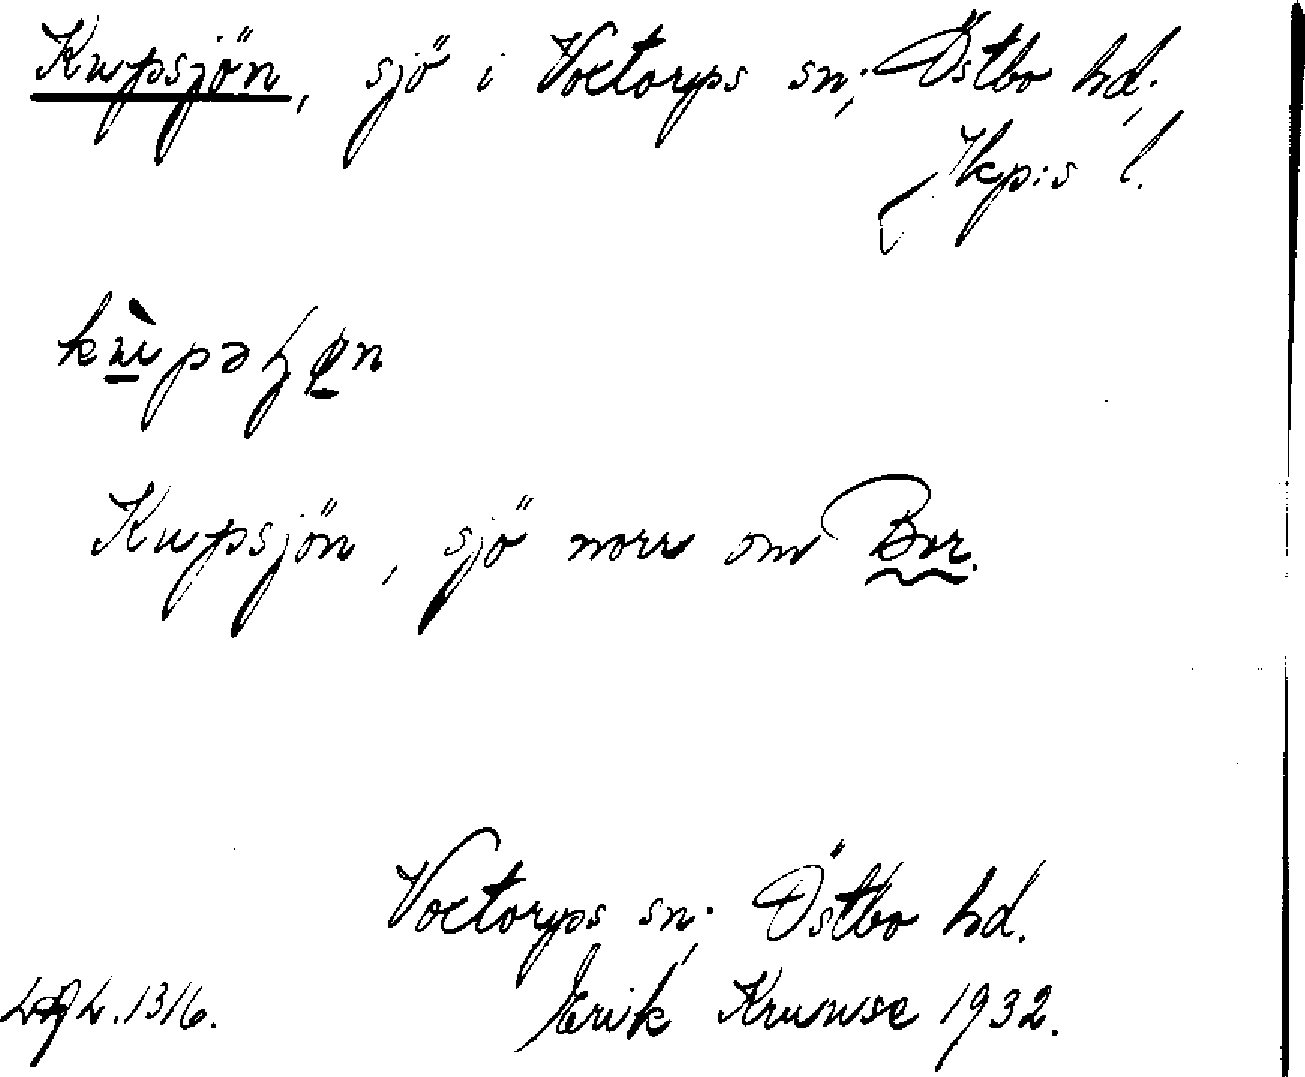 Kupsjön, sjö i Voxtorps sn; Östbo hd;
Jkp:s l.
Kupsjön, sjö norr om Bor.
Voxtorps sn; Östbo hd.
Erik Kruuse 1932.